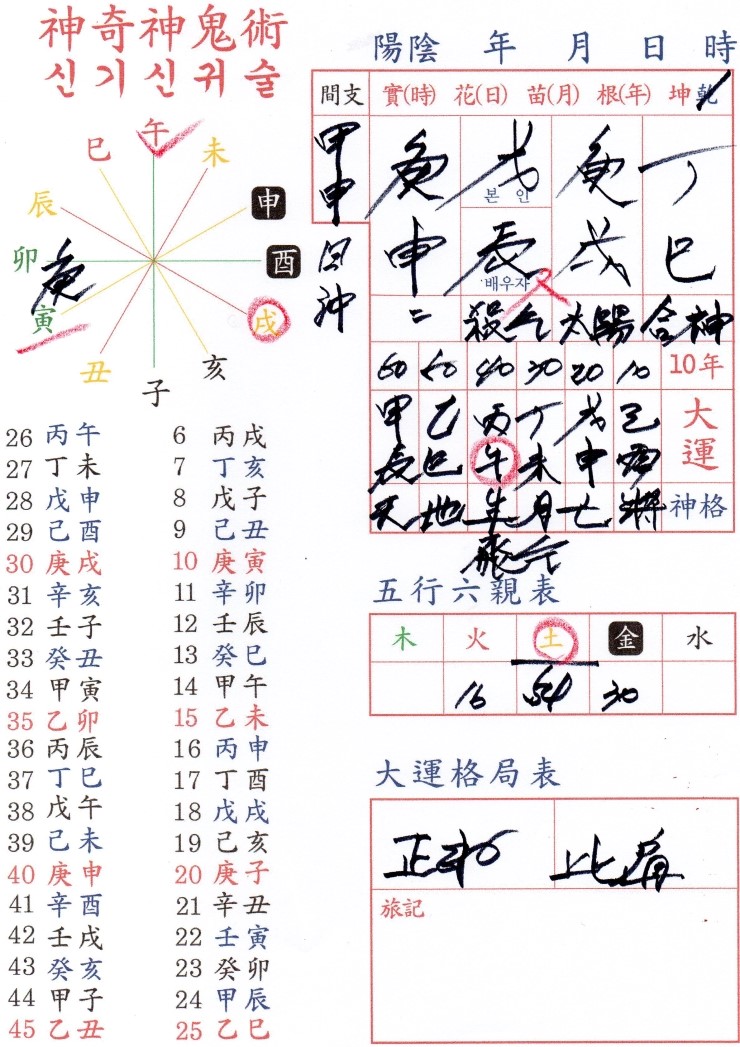 神奇神鬼術
신기신귀술
陽陰 年 月 日 時
間支 實(時) 花(日) 苗(月) 根(年) 坤 乾
甲申日沖
庚 戊 庚 丁
본인
申 辰 戌 巳
배우자
殺 太陽 合神
60 50 40 30 20 10 10年
甲 乙 丙 丁 戊 己 大運
辰 巳 午 未 申 酉
天 地 年 月 亡 將 神格
午
巳 未
辰 申
卯 酉
庚
寅 戌
丑 亥
子
五行六親表
木 火 土 金 水
16 54 30
大運格局表
正 比肩
旅記
26 丙午 6 丙戌
27 丁未 7 丁亥
28 戊申 8 戊子
29 己酉 9 己丑
30 庚戌 10 庚寅
31 辛亥 11 辛卯
32 壬子 12 壬辰
33 癸丑 13 癸巳
34 甲寅 14 甲午
35 乙卯 15 乙未
36 丙辰 16 丙申
37 丁巳 17 丁酉
38 戊午 18 戊戌
39 己未 19 己亥
40 庚申 20 庚子
41 辛酉 21 辛丑
42 壬戌 22 壬寅
43 癸亥 23 癸卯
44 甲子 24 甲辰
45 乙丑 25 乙巳